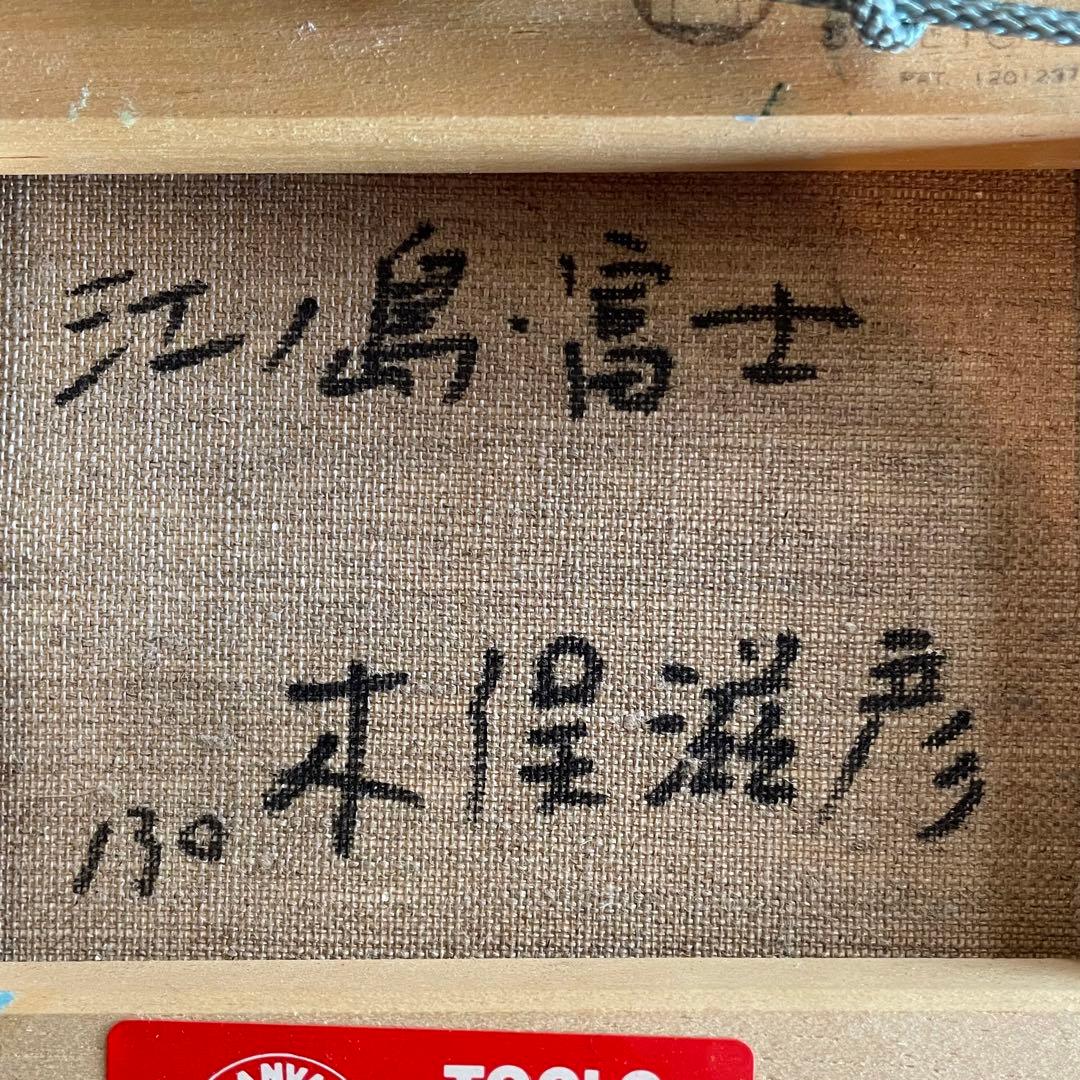 PAT. 1201237
江ノ島・富士
木俣滋彦
130
TOOLS